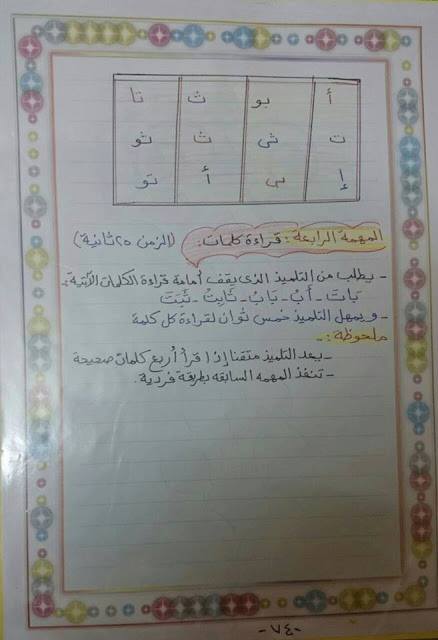 أ بو ث تا
ت ثي ث ثو
إ بي أ تو
المهمة الرابعة: قراءة كلمات: (الزمن ٢٥ ثانية)
- يطلب من التلميذ الذى يقف أمامه قراءة الكلمات الآتية:
بَاتَ - أَبُ - بَابُ - ثَابِتُ - ثَبَتَ
- و يمهل التلميذ خمس ثوان لقراءة كل كلمة
ملحوظة: -
- يعد التلميذ متقنا إذا قرأ أربع كلمات صحيحة
- تنفذ المهمه السابقه بطريقة فردية.
-٧٤-